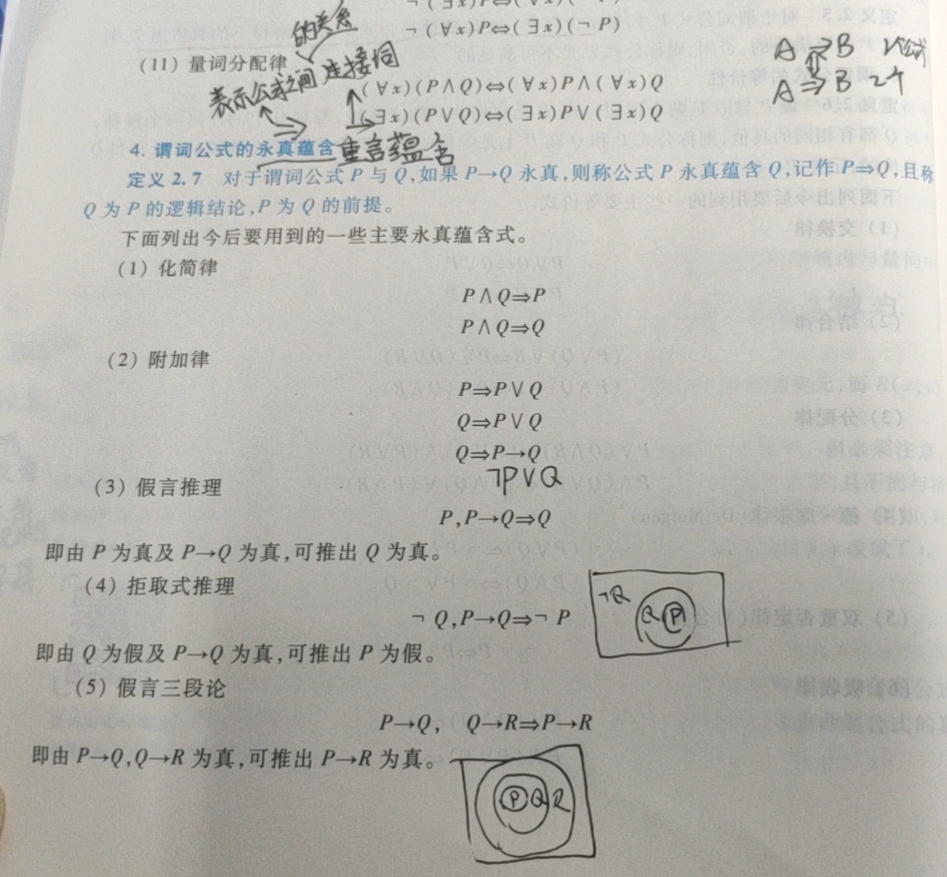 ¬(∃x)P⇔(∀x)(¬P)
¬(∀x)P⇔(∃x)(¬P)
的关系
(11) 量词分配律
表示公式之间 连接词
(∀x)(P∧Q)⇔(∀x)P∧(∀x)Q
(∃x)(P∨Q)⇔(∃x)P∨(∃x)Q
⇒
A→B 1公式
A⇒B 2个
4. 谓词公式的永真蕴含 重言蕴含
定义 2.7 对于谓词公式 P 与 Q,如果 P→Q 永真,则称公式 P 永真蕴含 Q,记作 P⇒Q,且称
Q 为 P 的逻辑结论,P 为 Q 的前提。
下面列出今后要用到的一些主要永真蕴含式。
(1) 化简律
P∧Q⇒P
P∧Q⇒Q
(2) 附加律
P⇒P∨Q
Q⇒P∨Q
Q⇒P→Q
¬P∨Q
(3) 假言推理
P,P→Q⇒Q
即由 P 为真及 P→Q 为真,可推出 Q 为真。
(4) 拒取式推理
¬Q,P→Q⇒¬P
¬Q Q P
即由 Q 为假及 P→Q 为真,可推出 P 为假。
(5) 假言三段论
P→Q, Q→R⇒P→R
即由 P→Q,Q→R 为真,可推出 P→R 为真。
P Q R